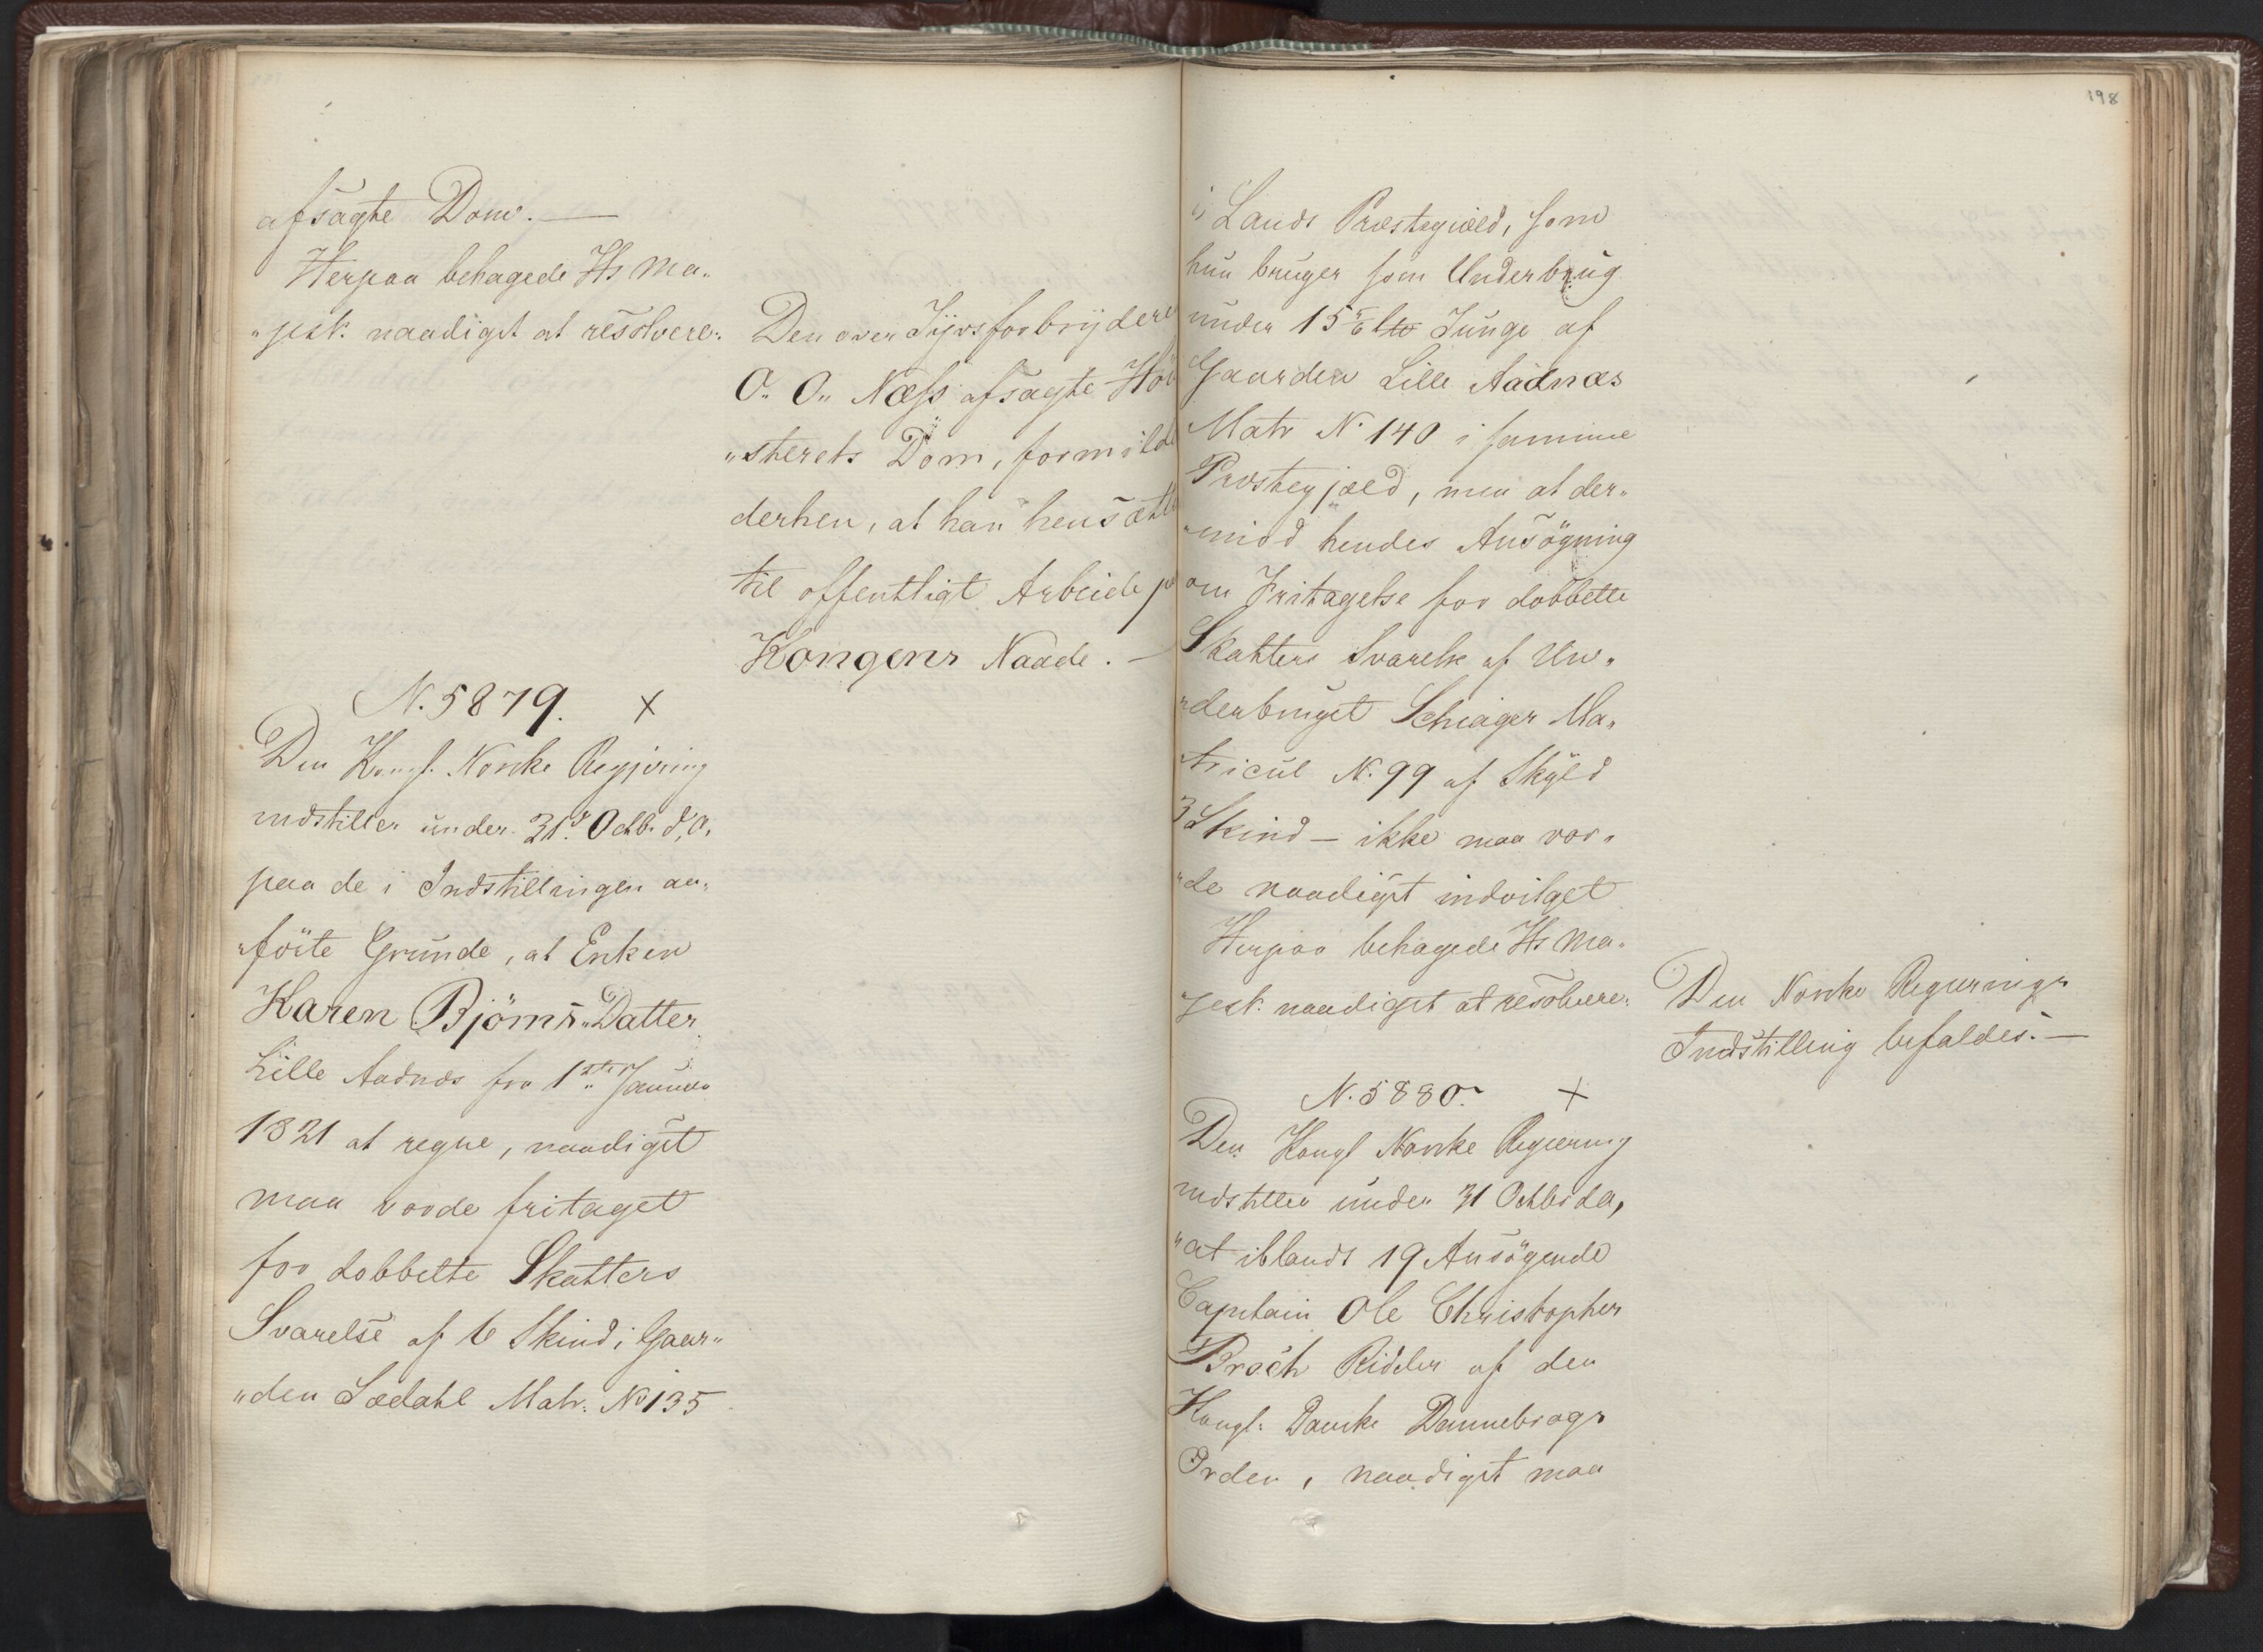 afsagte Dom. —
Herpaa behagede Hs Ma„
„jest. naadigst at resolvere:
Den over Tyvsforbryderen
O. O. Næss afsagte Höi
„sterets Dom, formild
derhen, at han hensætt
til offentligt Arbeide p
Kongens Naade. —
N. 5879. x
Den Kongl. Norske Regjering
indstiller under 31. Octb. d. a.
paa de i Indstillingen an„
„förte Grunde, at Enken
Karen Björns„Datter
Lille Aadnæs fra 1ste Januar
1821 at regne, naadigst
maa vorde fritaget
for dobbelte Skatters
Svarelse af 6 Skind i Gaar„
„den Sædahl Matr. No 135
198
i Lands Præstegiæld, som
hun bruger som Underbrug
under 15 Tunge af
Gaarden Lille Aadnæs
Matr N. 140 i samme
Præstegjæld, men at der„
„imod hendes Ansögning
om Fritagelse for dobbelte
Skatters Svarelse af Un„
„derbruget Schiager Ma„
tricul N. 99 af Skyld
3 Skind — ikke maa vor„
„de naadigst indvilget
Herpaa behagede Hs Ma„
jest. naadigst at resolvere:
Den Norske Regjerings
Indstilling befaldes. —
N. 5880. x
Den Kongl Norske Regjering
indstiller under 31 Octbr d. a,
„at iblandt 19 Ansögende
Capitain Ole Christopher
Broch Ridder af den
Kongl: Danske Dannebrogs
Orden, naadigst maa